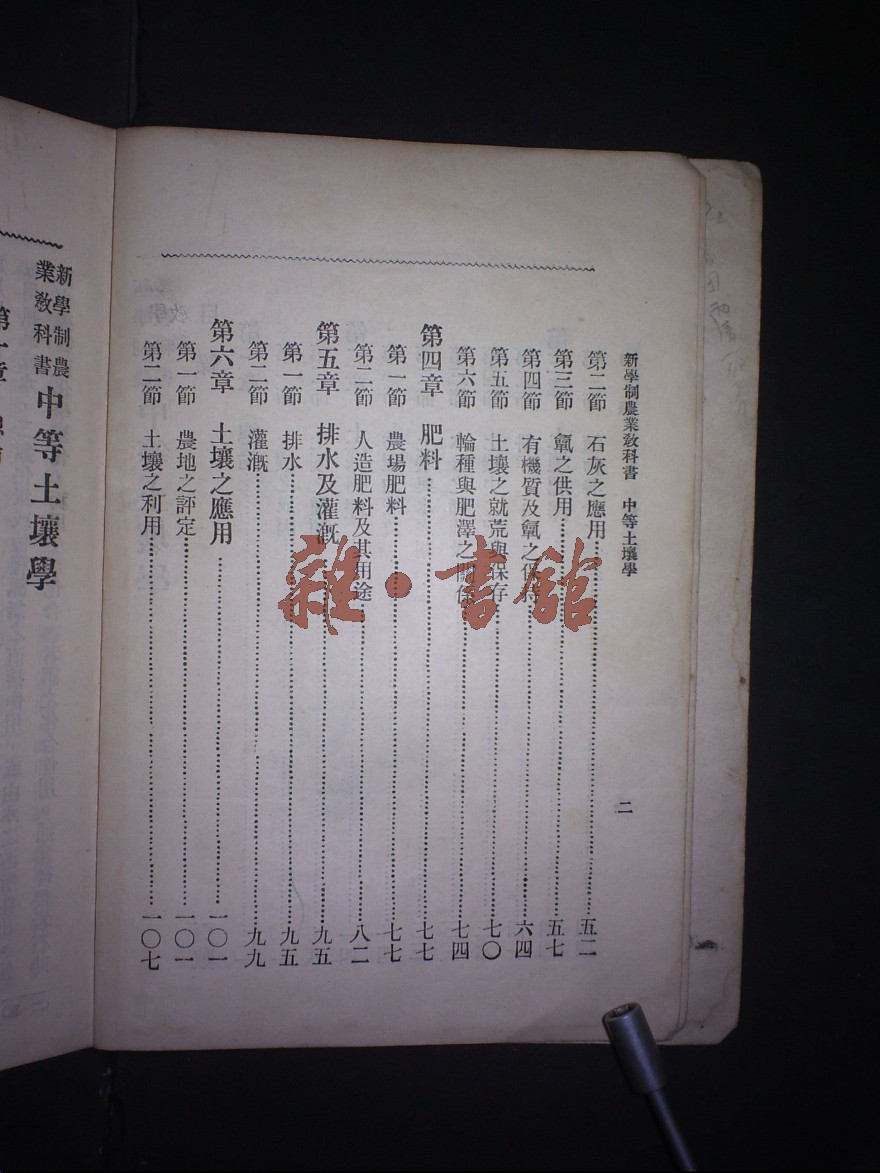 新學制農業教科書 中等土壤學
二
第二節 石灰之應用 五二
第三節 氮之供用 五七
第四節 有機質及氮之保持 六四
第五節 土壤之就荒與保存 七〇
第六節 輪種與肥澤之關係 七四
第四章 肥料 七七
第一節 農場肥料 七七
第二節 人造肥料及其用途 八二
第五章 排水及灌漑 九五
第一節 排水 九五
第二節 灌漑 九九
第六章 土壤之應用 一〇一
第一節 農地之評定 一〇一
第二節 土壤之利用 一〇七
新學制農業教科書 中等土壤學
第一章
雜·書館